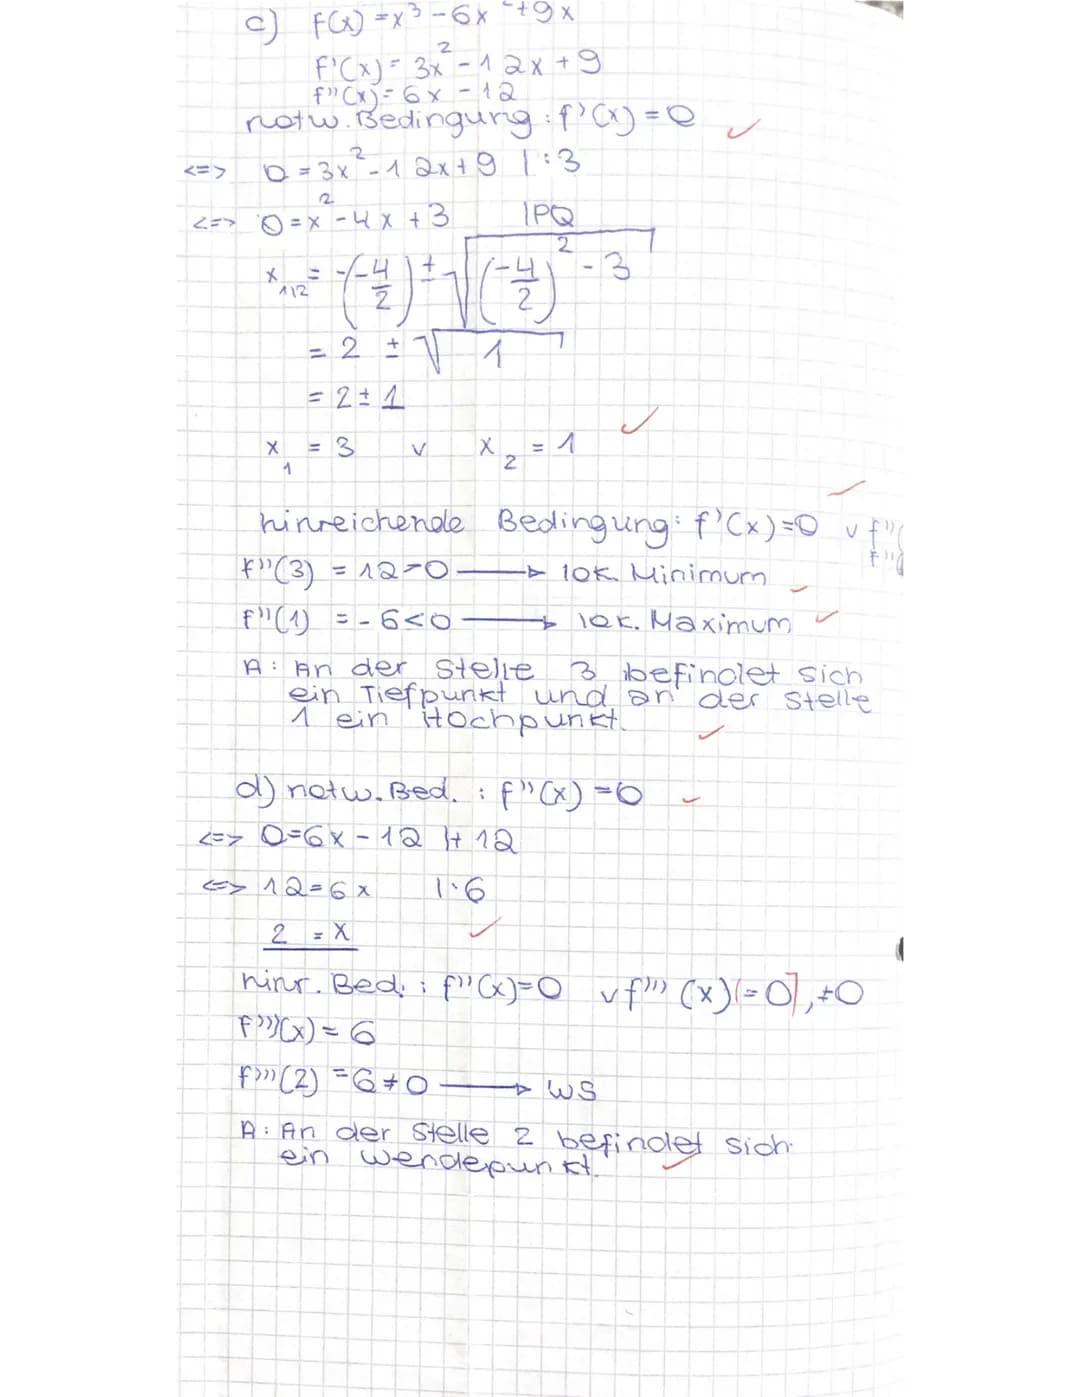 c) f(x) = x³ - 6x²+9x
f'(x) = 3x² - 12x + 9
f''(x) = 6x - 12
notw. Bedingung: f'(x) = 0
<=> 0 = 3x² - 12x + 9 |:3
<=> 0 = x² - 4x + 3 |PQ
x₁|₂ = -(-4/2) ± √((-4/2)² - 3)
= 2 ± √1
= 2 ± 1
x₁ = 3 v x₂ = 1
hinreichende Bedingung: f'(x)=0 v f''(
f''(
f''(3) = 12>0 → lok. Minimum
f''(1) = -6<0 → lok. Maximum
A: An der Stelle 3 befindet sich
ein Tiefpunkt und an der Stelle
1 ein Hochpunkt.
d) notw. Bed. : f''(x) = 0
<=> 0=6x - 12 |+ 12
<=> 12=6x |:6
2 = x
hinr. Bed. : f''(x)=0 v f'''(x) (=0), ≠0
f'''(x) = 6
f'''(2) = 6 ≠ 0 → WS
A: An der Stelle 2 befindet sich
ein Wendepunkt.